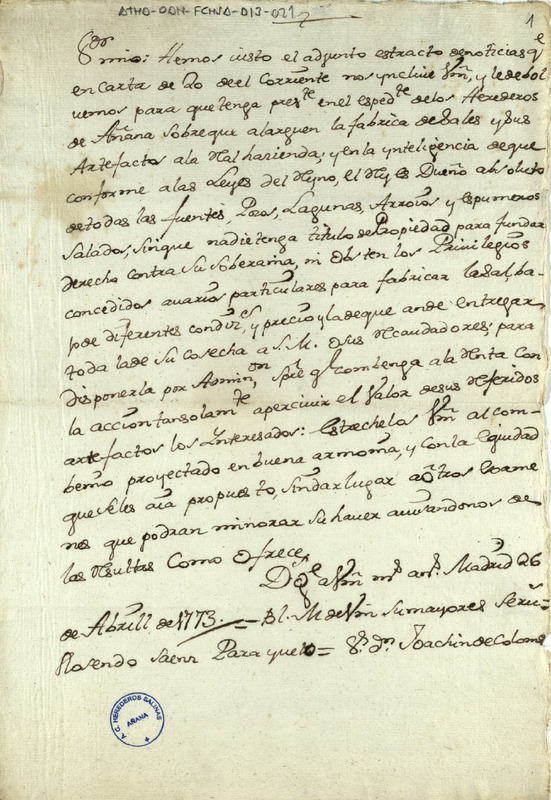 ATHO-ODN-FCHSA-D13-021
1
Sor mio: Hemos visto el adjunto estracto de noticias qe
en Carta de 20 de el Corriente nos yncluie Vm, y le debol
vemos para que tenga preste en el espedte de los Herederos
de Añana sobre que alarguen la fabrica de Sales y sus
Artefactos a la Rl hacienda; y en la ynteligencia de que
conforme a las Leyes del Ryno, el Rey es Dueño absoluto
de todas las fuentes, Pozos, Lagunas, Arroios y espumeros
Salados, sin que nadie tenga titulo de Propiedad para fundar
derecho contra su soberania, ni obsten los Privilegios
concedidos a varios particulares para fabricar la Sal, ba-
jo de diferentes condizs, y precio, y la de que an de entregar
toda la de su Cosecha a S.M. o sus Recaudadores; para
disponerla por Adminon, spre qe combenga a la Renta con
la accion tan solamte a percivir el Valor de sus Referidos
artefactos los Ynteresados: Estrechelos Vm al com-
benio proyectado en buena armonia, y con la equidad
que se les avia propuesto, sin dar lugar a otros exame
nes que podran minorar su haver avisandonos de
las Resultas Como Ofrece.
Dios gue a Vm ms ans. Madrid 26
de Abrill de 1773. = Bl. M de Vm sus mayores Servi=
Rosendo Saenz Parayuelo = Sr. Dn Joachin de Coloma
A.C. HEREDEROS SALINAS
AÑANA